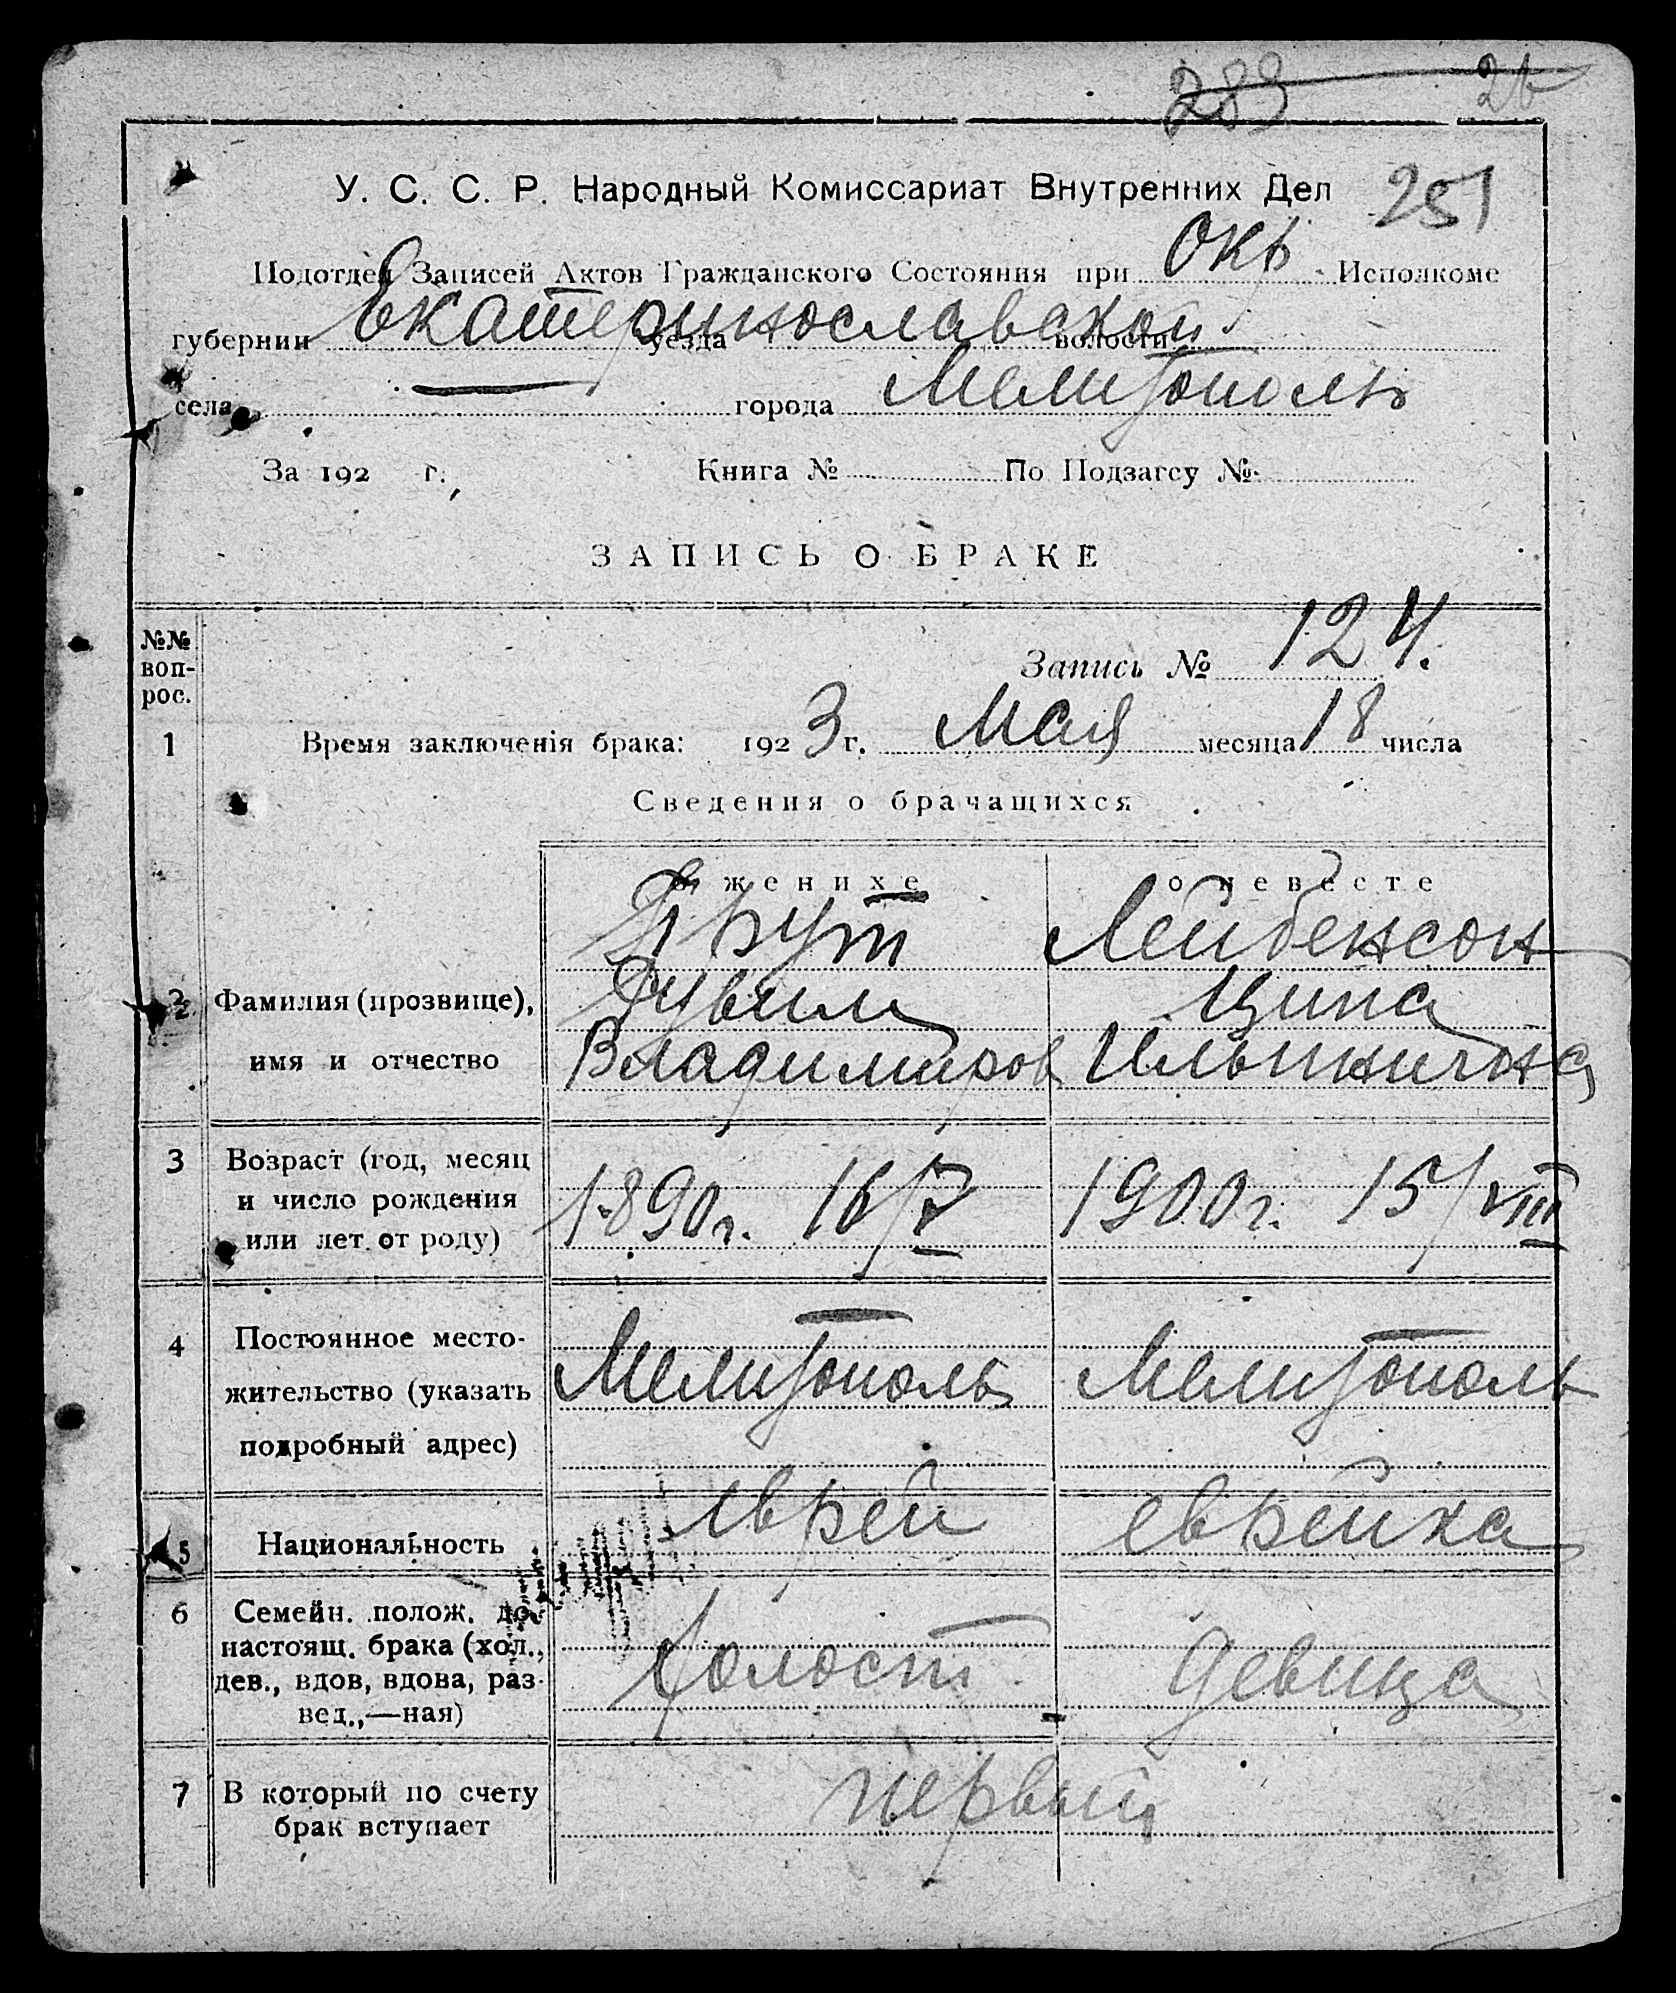 283 26
У. С. С. Р. Народный Комиссариат Внутренних Дел 251
Подотдел Записей Актов Гражданского Состояния при Окр. Исполкоме
губернии Екатеринославской уезда волости
села — города Мелитополь
За 192 г. Книга № По Подзагсу №
ЗАПИСЬ О БРАКЕ
№№ вопрос.
Запись № 124.
1 Время заключенія брака: 1923 г. Мая месяца 18 числа
Сведения о брачащихся
о женихе о невесте
Прут Лейбенсон
2 Фамилия (прозвище), Рувим Ципа
имя и отчество Владимиров Ильинична
3 Возраст (год, месяц
и число рождения 1890 г. 16/V 1900 г. 15/VIII
или лет от роду)
4 Постоянное место-
жительство (указать Мелитополь Мелитополь
подробный адрес)
5 Национальность Еврей еврейка
6 Семейн. полож. до
настоящ. брака (хол.,
дев., вдов, вдова, раз- Холост девица
вед.,—ная)
7 В который по счету первый
брак вступает